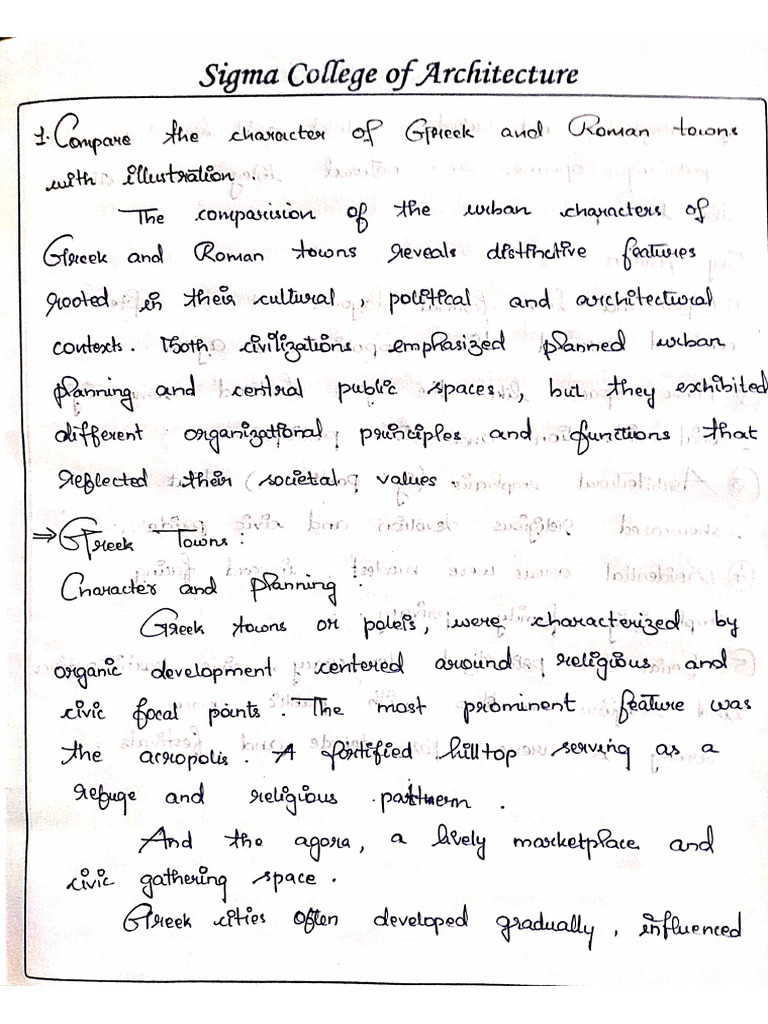 Sigma College of Architecture
1. Compare the character of Greek and Roman towns
with illustration.
The comparision of the urban characters of
Greek and Roman towns reveals distinctive features
rooted in their cultural, political and architectural
contexts. Both civilizations emphasized planned urban
planning and central public spaces, but they exhibited
different organizational principles and functions that
reflected their societal values.
⇒ Greek Towns:
Character and planning:
Greek towns or poleis, were characterized by
organic development centered around religious and
civic focal points. The most prominent feature was
the acropolis. A fortified hilltop serving as a
refuge and religious
And the agora, a lively marketplace and
civic gathering space.
Greek cities often developed gradually, influenced